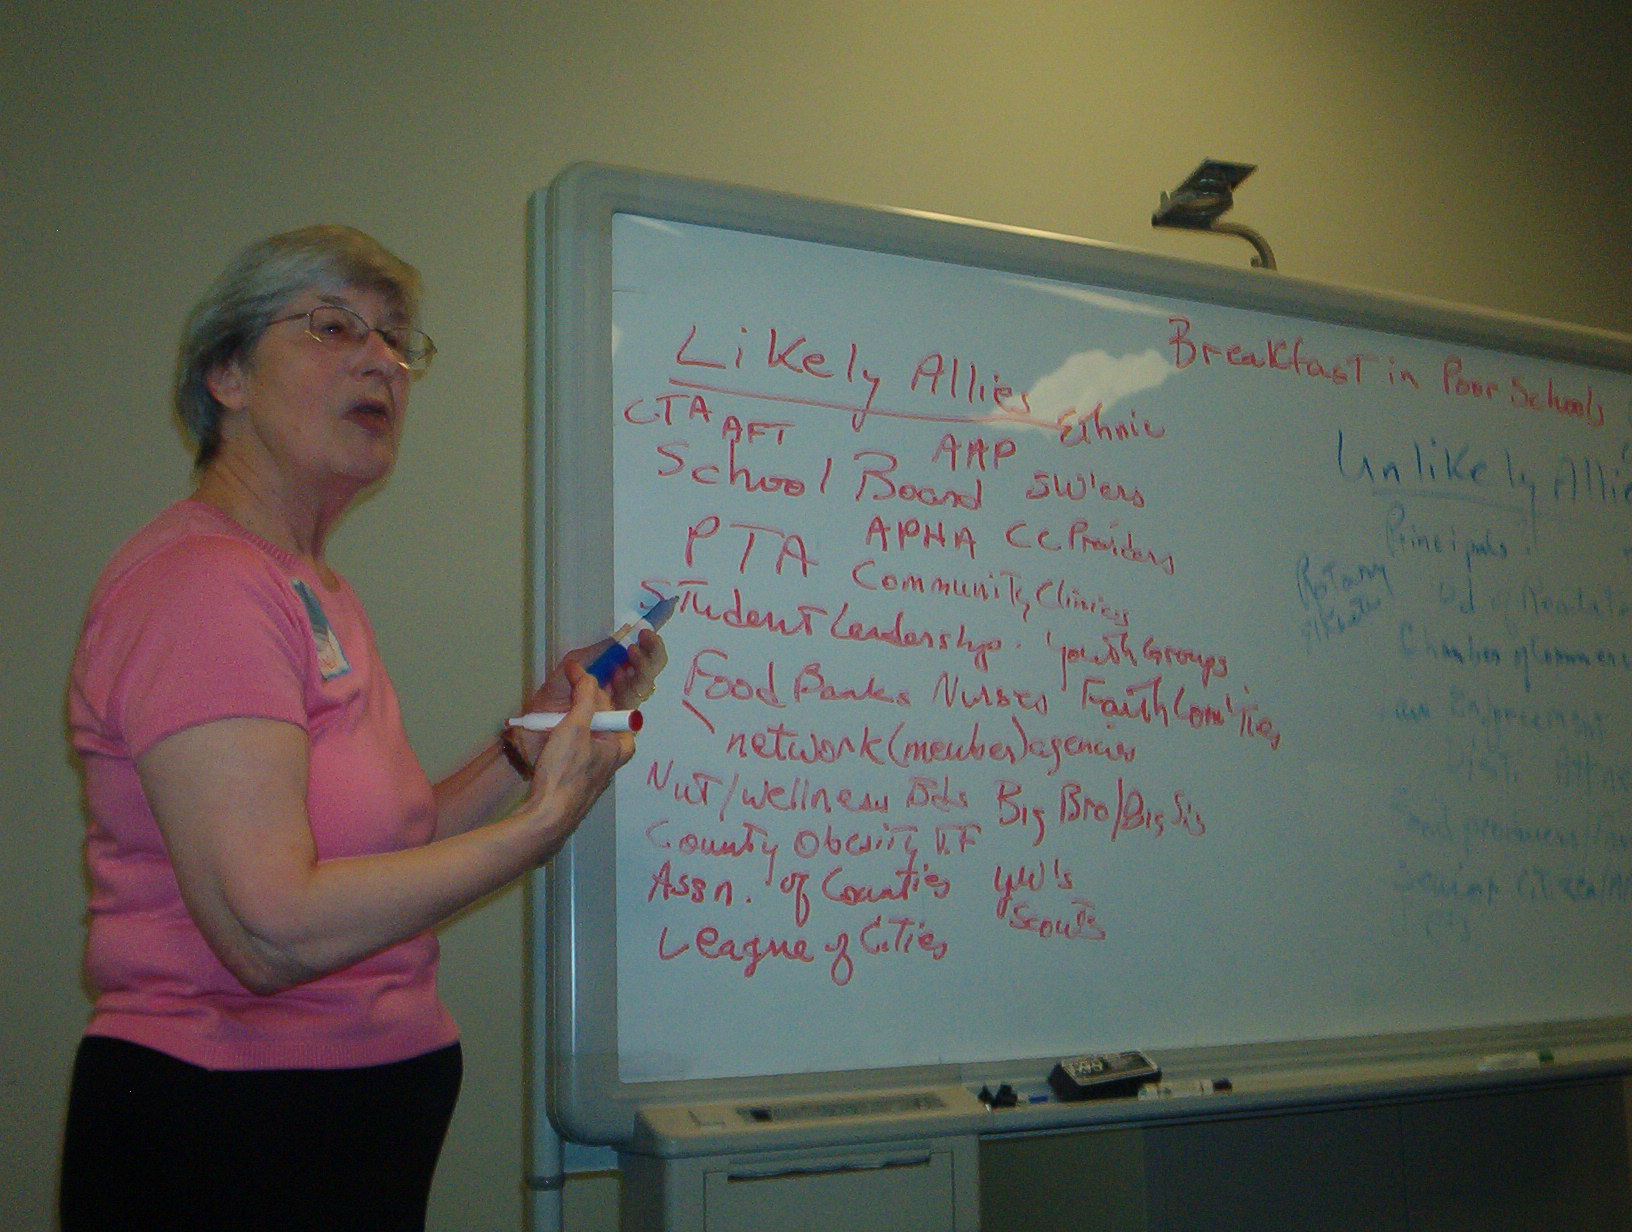 Breakfast in Poor Schools
Likely Allies
CTA AFT AAP Ethnic
School Board SW'ers
PTA APHA CC Providers
Community Clinics
Student Leadership Youth Groups
Food Banks Nurses Faith Com'ties
network (member) agencies
Nut/wellness Big Bro/Big Sis
County Obesity T.F
Assn. of Counties YW's
Scouts
League of Cities
Unlikely Allie
Principals
Rotary
Kiwanis
Chamber of Commerc
Enforcement
Food producers/
Senior Citizen/